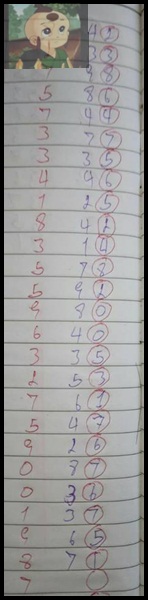 4 2
3 3
7 9 8
5 8 6
7 4 4
3 7 7
3 3 5
4 9 6
1 2 5
8 4 2
3 1 4
5 7 8
5 9 2
9 8 0
6 4 0
3 3 5
2 5 3
7 6 1
5 4 7
9 2 6
0 8 7
0 3 6
1 3 7
9 6 5
8 7 1
7